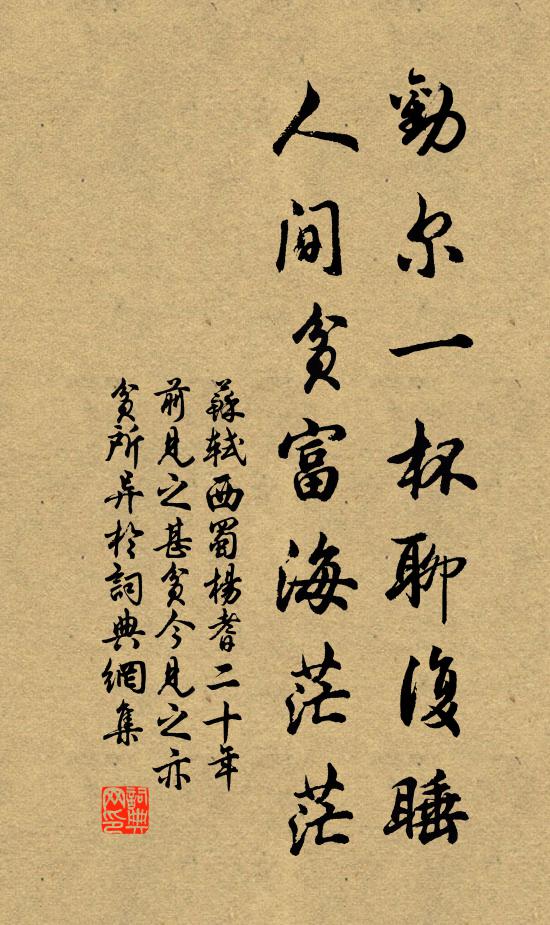 勸尔一杯聊復睡
人间贫富海茫茫
蘇軾西蜀楊耆二十年
前見之甚贫今見之亦
贫所异於詞典網集
詞典网印